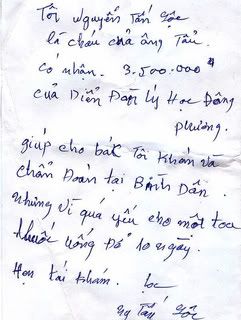 Tôi Nguyễn Tấn Lộc
là cháu của ông Tẩu.
có nhận. 3.500.000đ
của Diễn Đàn Lý Học Đông
phương.
giúp cho bác Tôi Khán và
chẩn Đoán tại Bình Dân.
nhưng vì quá yếu cho một toa
thuốc uống Đỏ 10 ngày.
Hẹn tái khám.
Ng Tấn Lộc